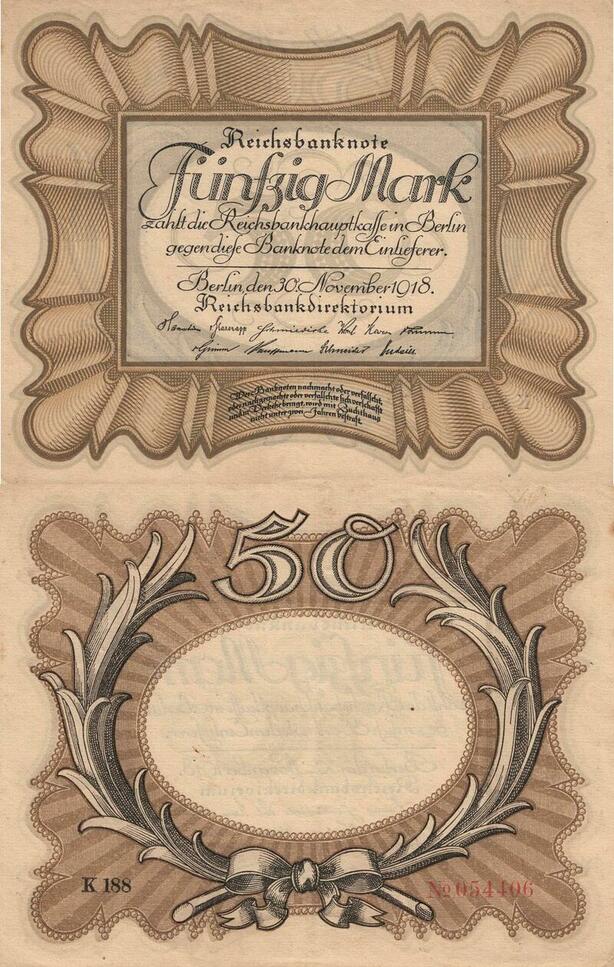 Reichsbanknote
Fünfzig Mark
zahlt die Reichsbankhauptkasse in Berlin
gegen diese Banknote dem Einlieferer.
Berlin, den 30. November 1918.
Reichsbankdirektorium
Grimm Kauffmann Schneider Budczies
Wer Banknoten nachmacht oder verfälscht,
oder nachgemachte oder verfälschte sich verschafft
und in Verkehr bringt, wird mit Zuchthaus
nicht unter zwei Jahren bestraft.
50
K 188
No 054406